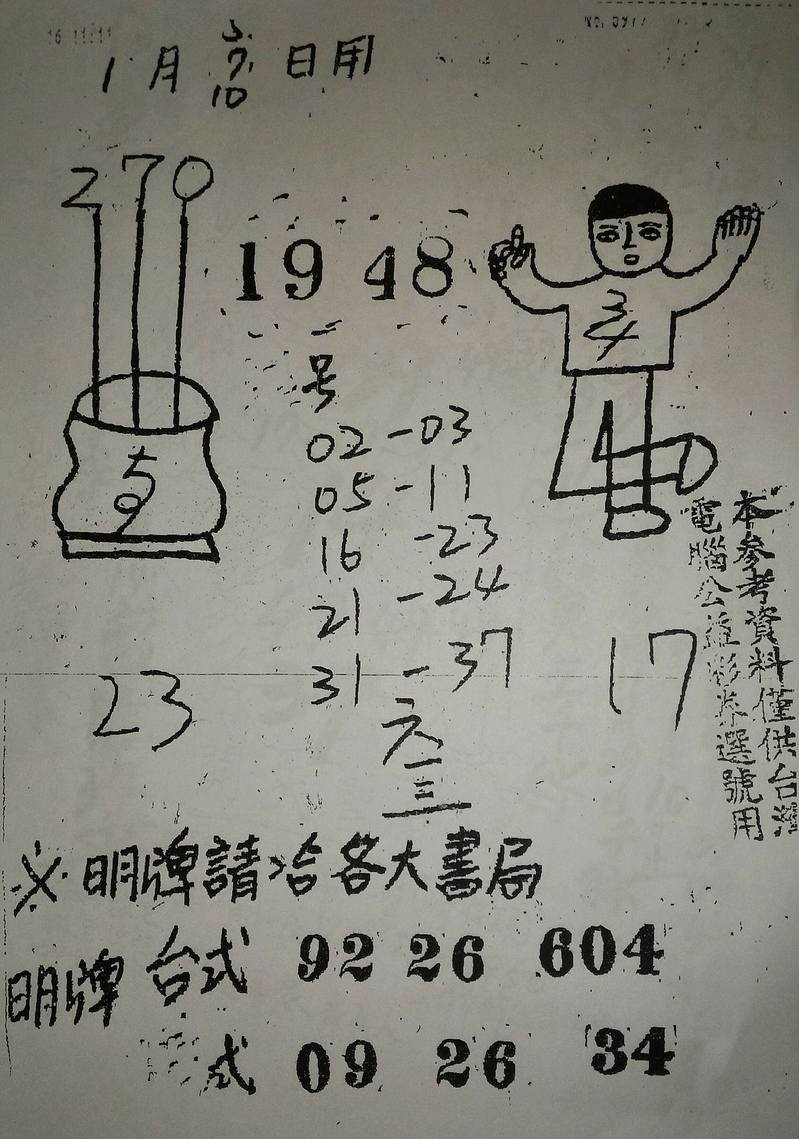 1月 5.7.10 日用
270
19 48
号
02 - 03
05 - 11
16 - 23
21 - 24
31 - 37
23
17
六
三
本參考資料僅供台灣
電腦公益彩券選號用
※明牌請洽各大書局
明牌 台式 92 26 604
式 09 26 34